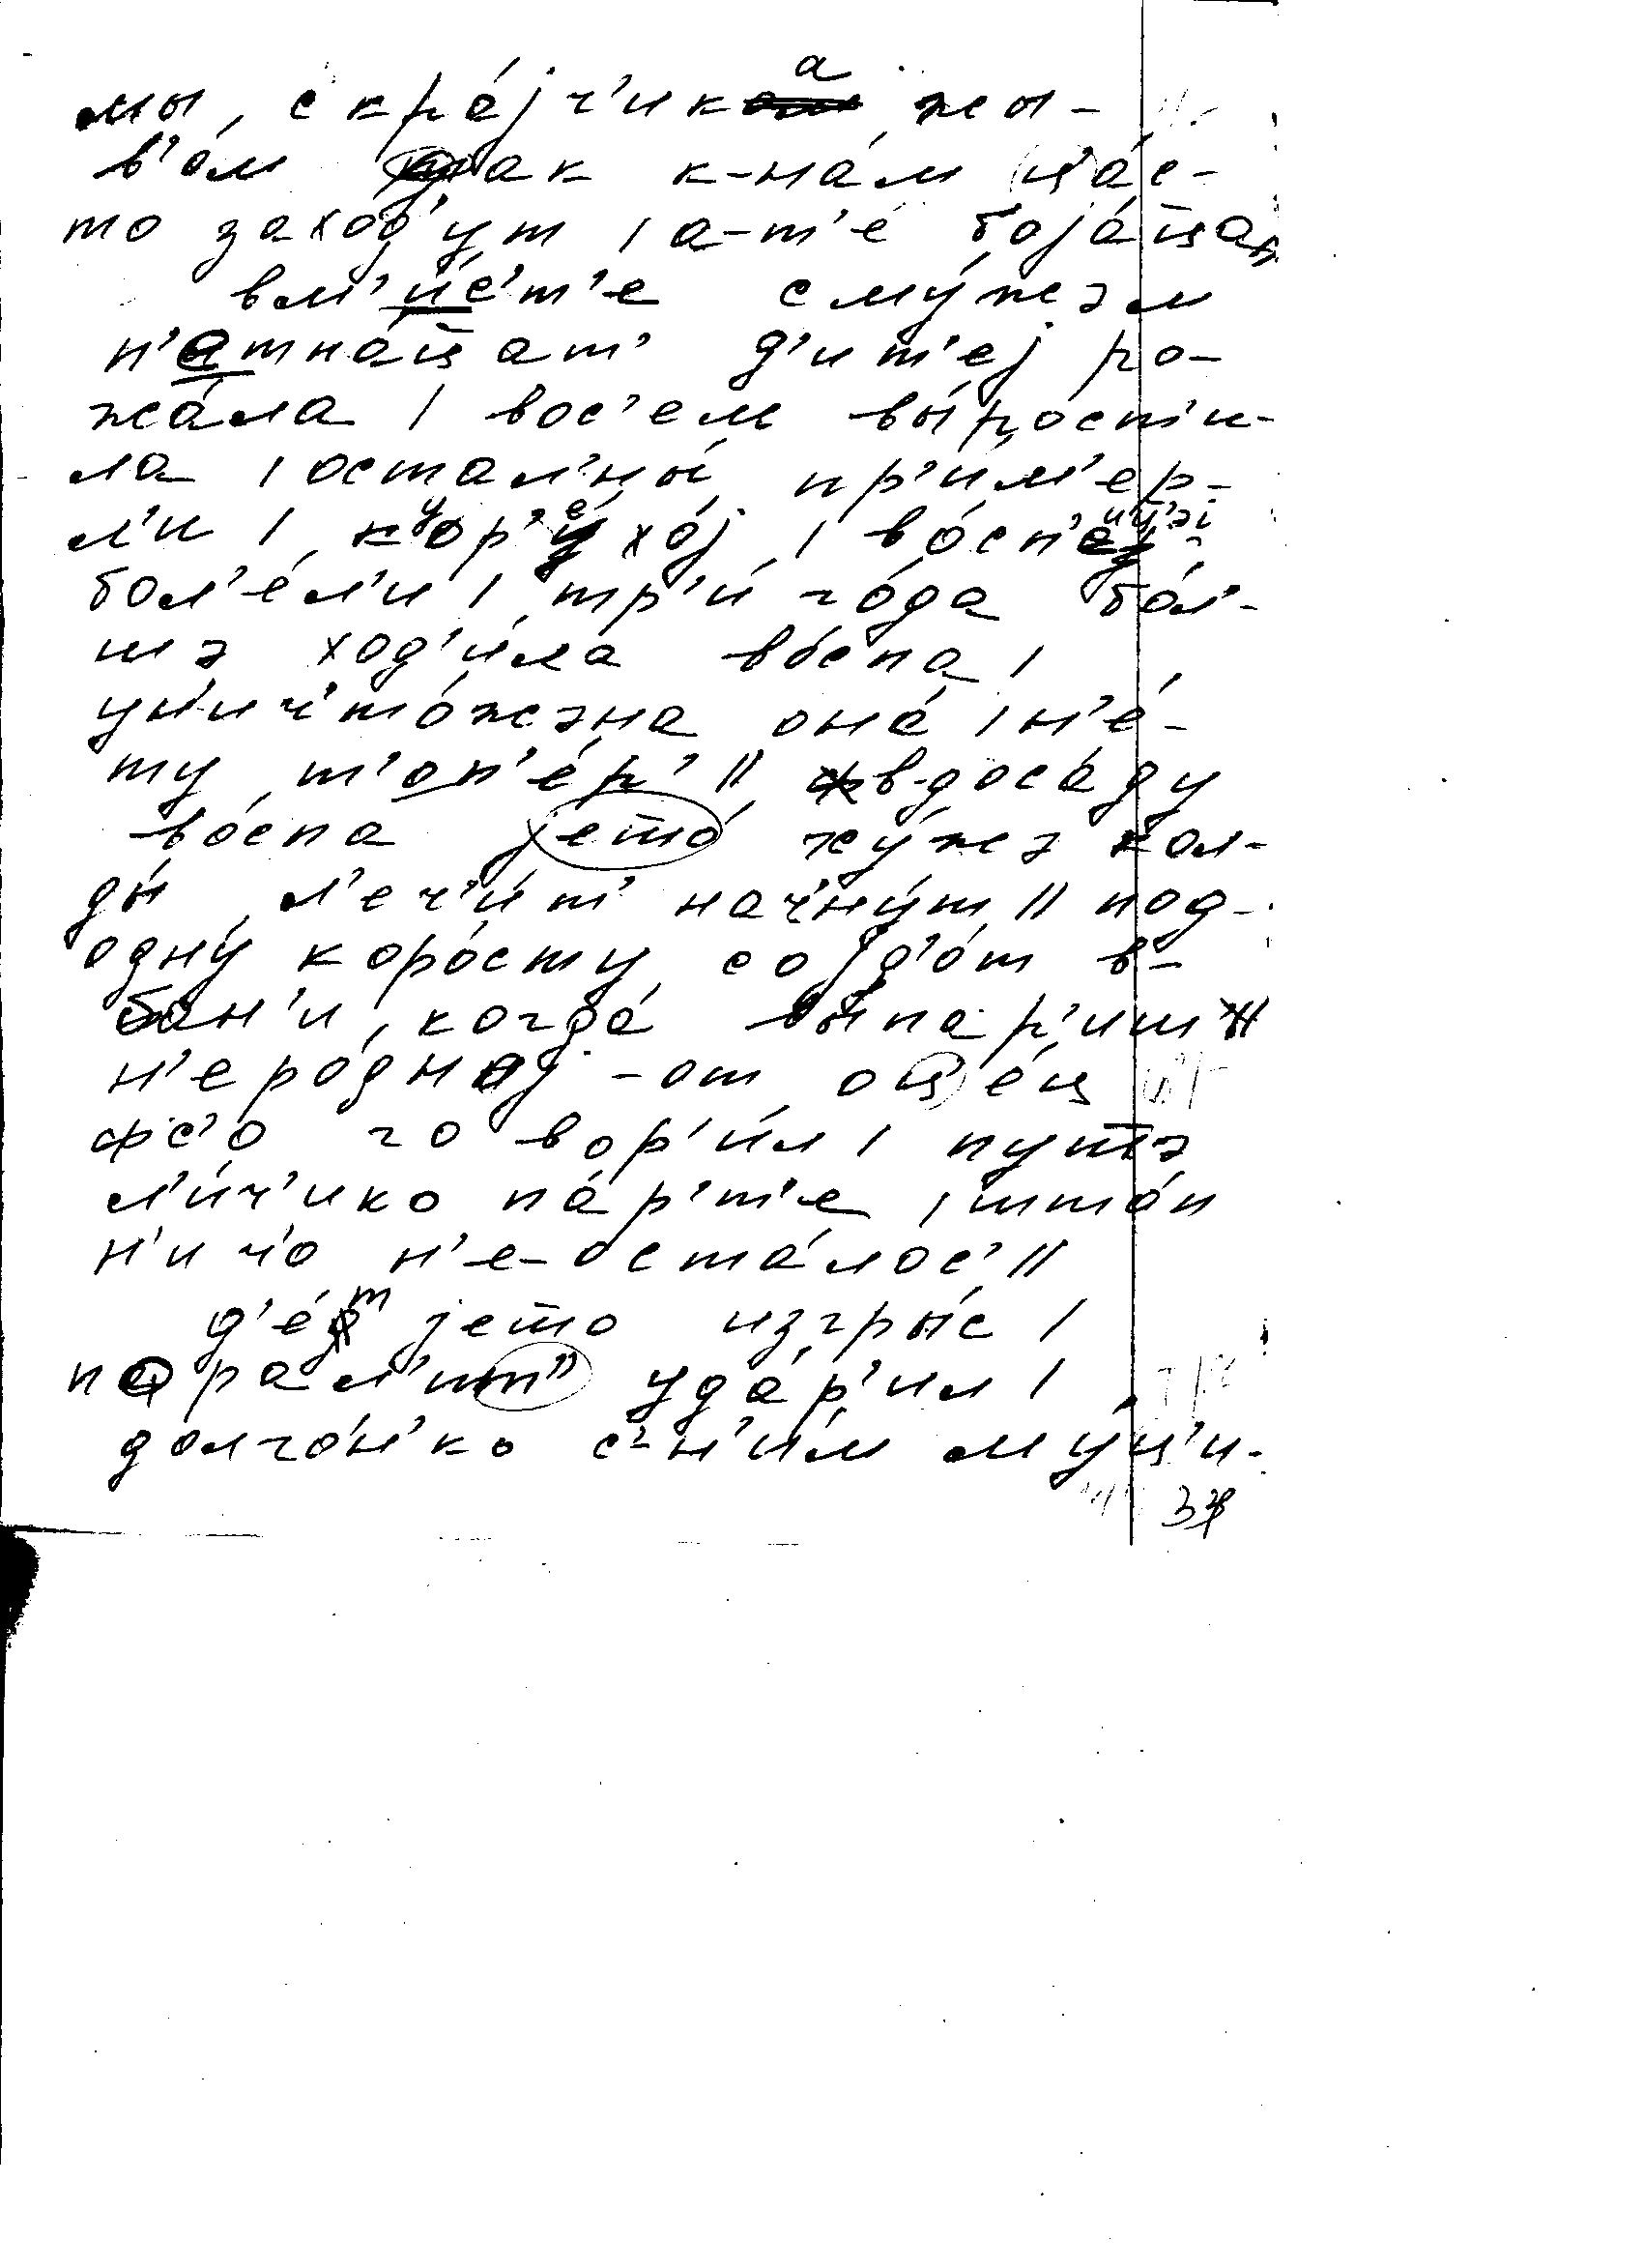 мы, с кра́јч'ика жы-
в'о́м так к-на́м ц'а́с-
то захо́д'ут | а-т'е́ боја́ц̄а
вм'и́с'т'е с му́жэм
п'етна́ц̄ат' д'ит'е́ј ро-
жа́ла | вос'ем вы́рост'и-
ла | остал'ны́ пр'и́м'ер-
л'и | кур'ехо́ј |
бол'е́л'и | тр'и́ го́да бо́л'-
шэ ход'и́ла во́спа |
ун'ичто́жэна она́ | н'е́-
ту т'оп'е́р' || в-доса́ду
во́спа јет̄о́ ху́жэ кол-
ды́ л'еч'и́т' начну́т || под-
одну́ коро́сту сојд'о́т в-
ба́н'и, когда́ вы́пар'иш ||
н'еро́дној -от оц̄е́ц
фс'о говор'и́л | пут̄э
л'и́ч'ико па́р'т'е | што́п
н'ичо́ н'е-оста́лос' ||
д'е́т јет̄о изгры́с |
порал'ит'' уда́р'ил |
долго́н'ко с-н'и́м му́ц'и-